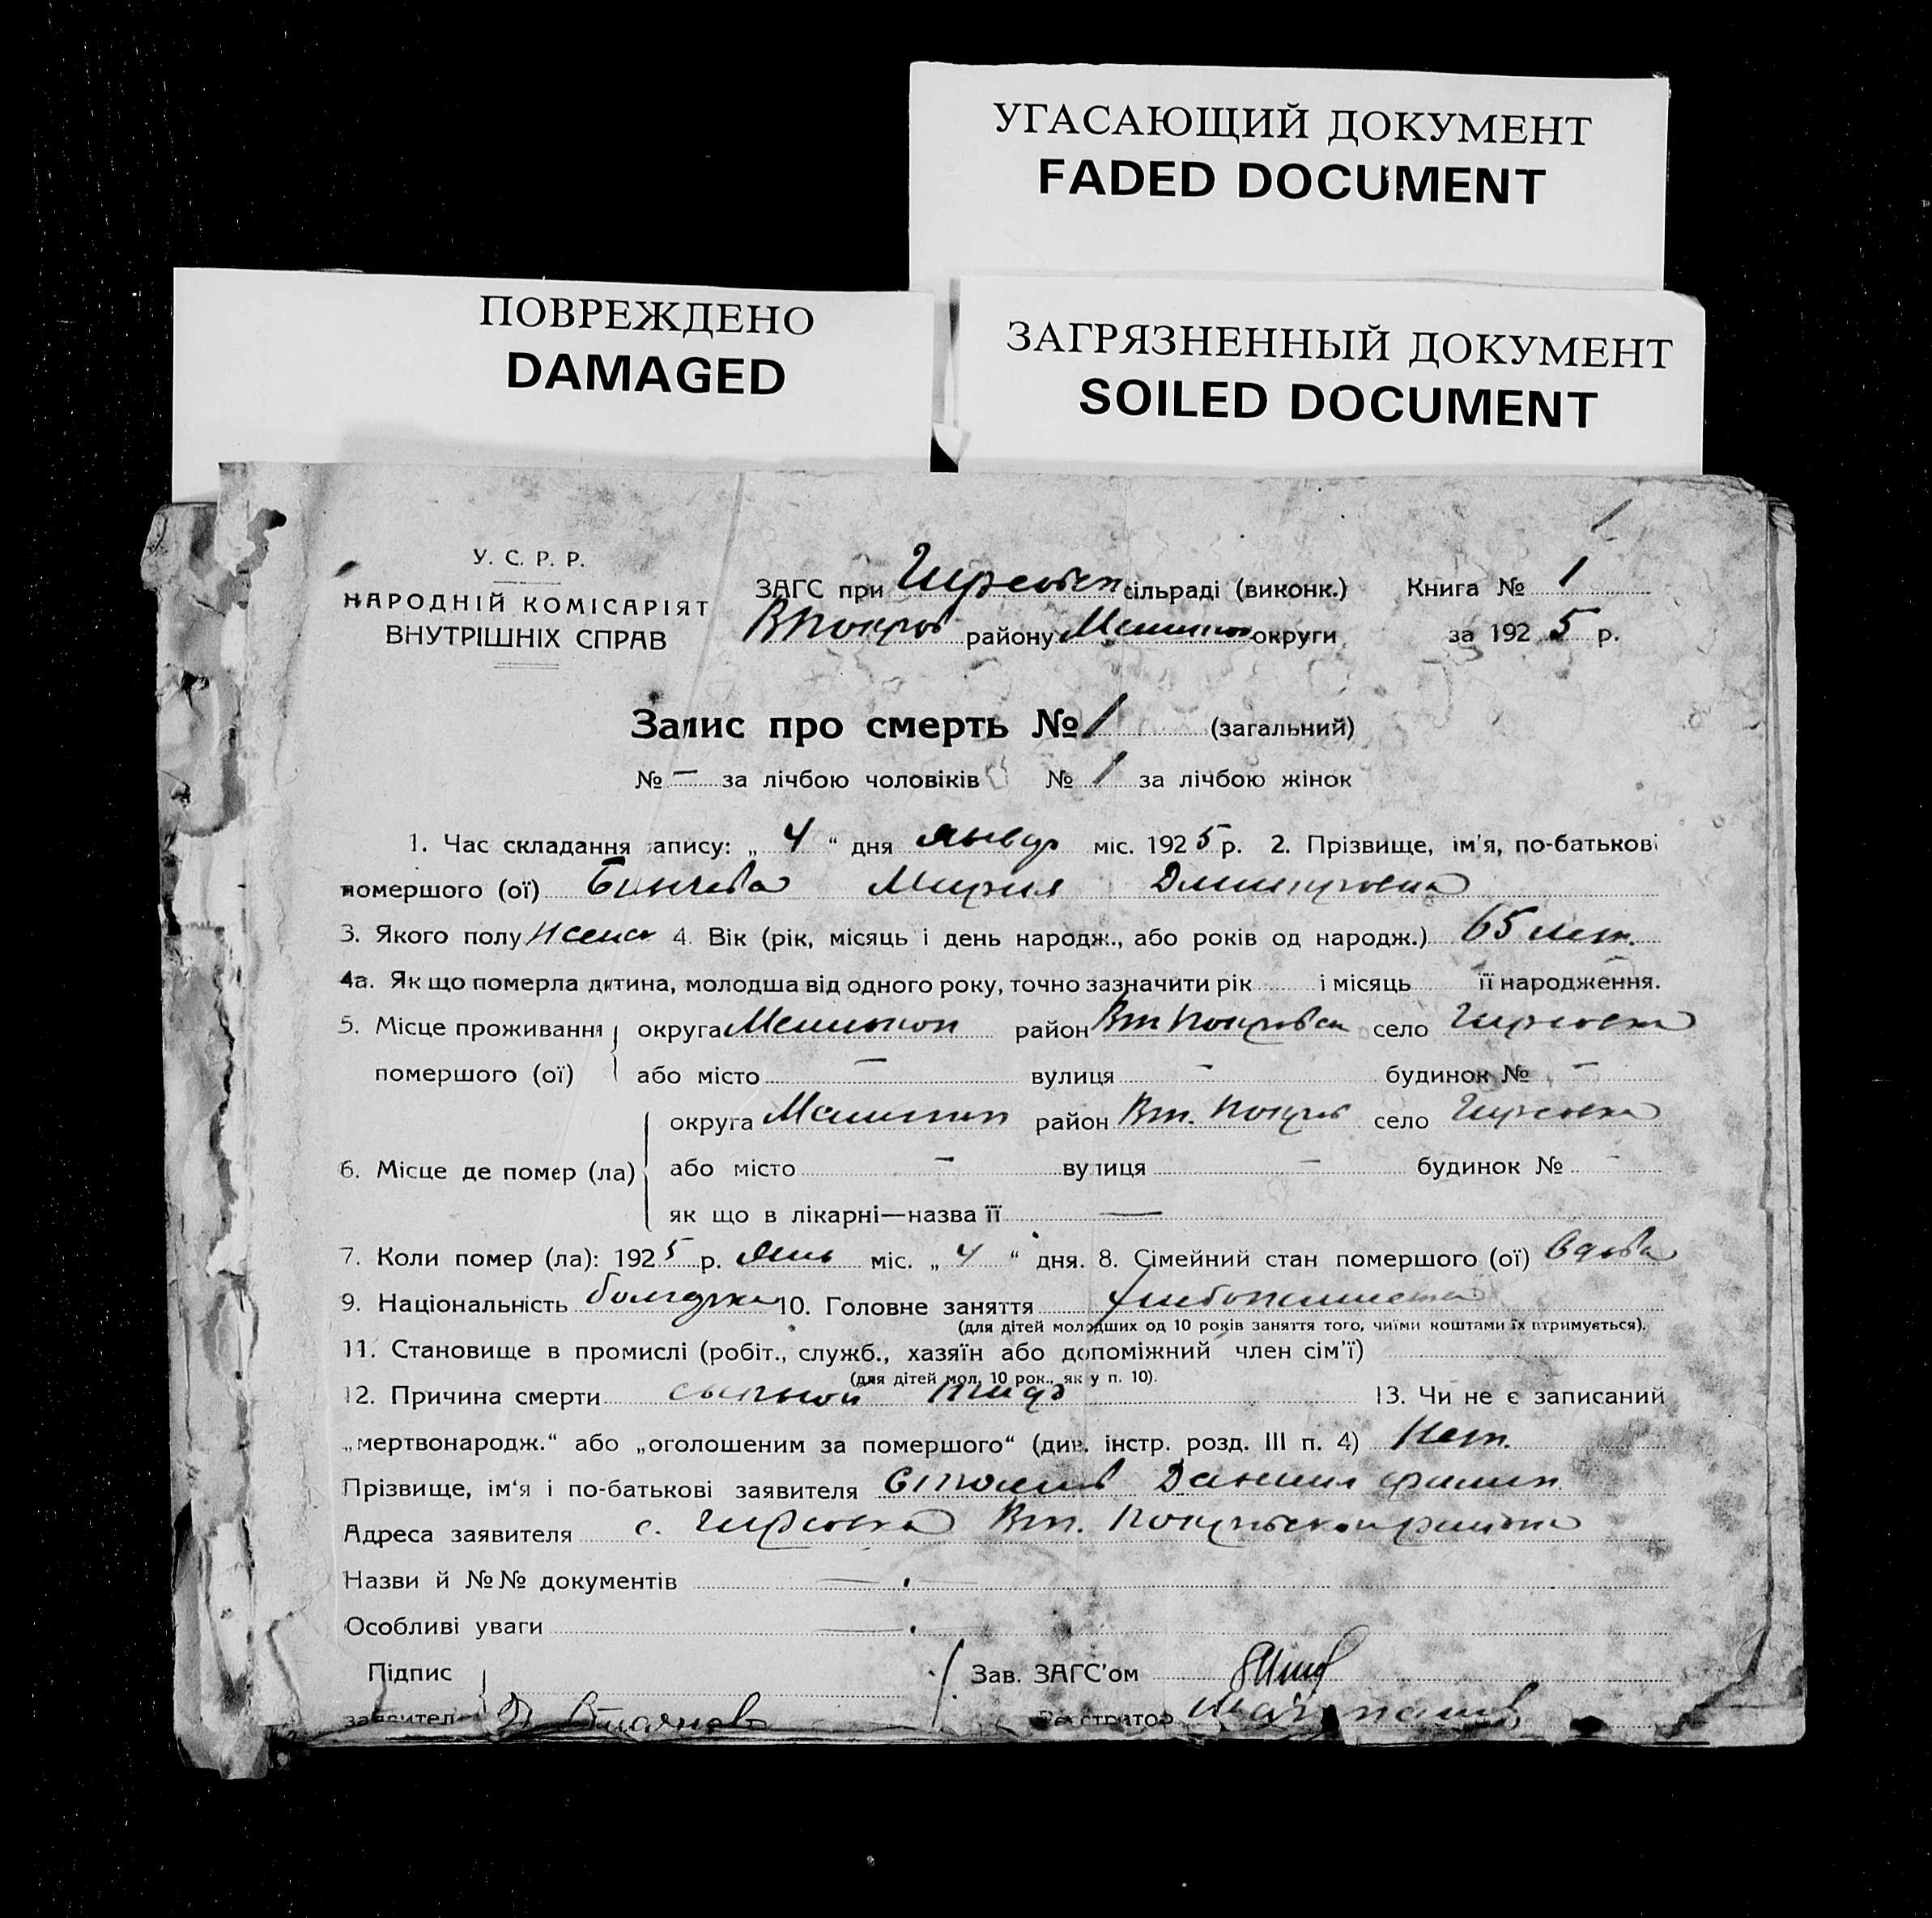 УГАСАЮЩИЙ ДОКУМЕНТ
FADED DOCUMENT
ПОВРЕЖДЕНО
DAMAGED
ЗАГРЯЗНЕННЫЙ ДОКУМЕНТ
SOILED DOCUMENT
У. С. Р. Р.
НАРОДНІЙ КОМІСАРІЯТ
ВНУТРІШНІХ СПРАВ
ЗАГС при сільраді (виконк.) Книга № 1
ВПокров району округи за 192 5 р.
Запис про смерть № 1 (загальний)
№ — за лічбою чоловіків № 1 за лічбою жінок
1. Час складання запису: „ 4 “ дня январ міс. 192 5 р. 2. Прізвище, ім'я, по-батькові
помершого (ої) Мария Дмитровна
3. Якого полу женск 4. Вік (рік, місяць і день народж., або років од народж.) 65 лет.
4а. Як що померла дитина, молодша від одного року, точно зазначити рік і місяць її народження.
5. Місце проживання округа район Вт Покровск село Гирсовка
помершого (ої) або місто — вулиця — будинок № —
округа район Вт. Покров село Гирсовка
6. Місце де помер (ла) або місто — вулиця — будинок № —
як що в лікарні—назва її —
7. Коли помер (ла): 192 5 р. Янв міс. „ 4 “ дня. 8. Сімейний стан помершого (ої) Вдова
9. Національність болгарка 10. Головне заняття хлебопашество
(для дітей молодших од 10 років заняття того, чиїми коштами їх втримується).
11. Становище в промислі (робіт., служб., хазяїн або допоміжний член сім'ї)
(для дітей мол. 10 рок., як у п. 10).
12. Причина смерти сыпной тиф 13. Чи не є записаний
„мертвонародж.“ або „оголошеним за помершого“ (див. інстр. розд. III п. 4) Нет.
Прізвище, ім'я і по-батькові заявителя Стоянов Даниил Филип
Адреса заявителя с. Гирсовка Вт. Покровского района
Назви й №№ документів —
Особливі уваги —
Підпис Зав. ЗАГС'ом
заявителя Д Стоянов Реєстратор